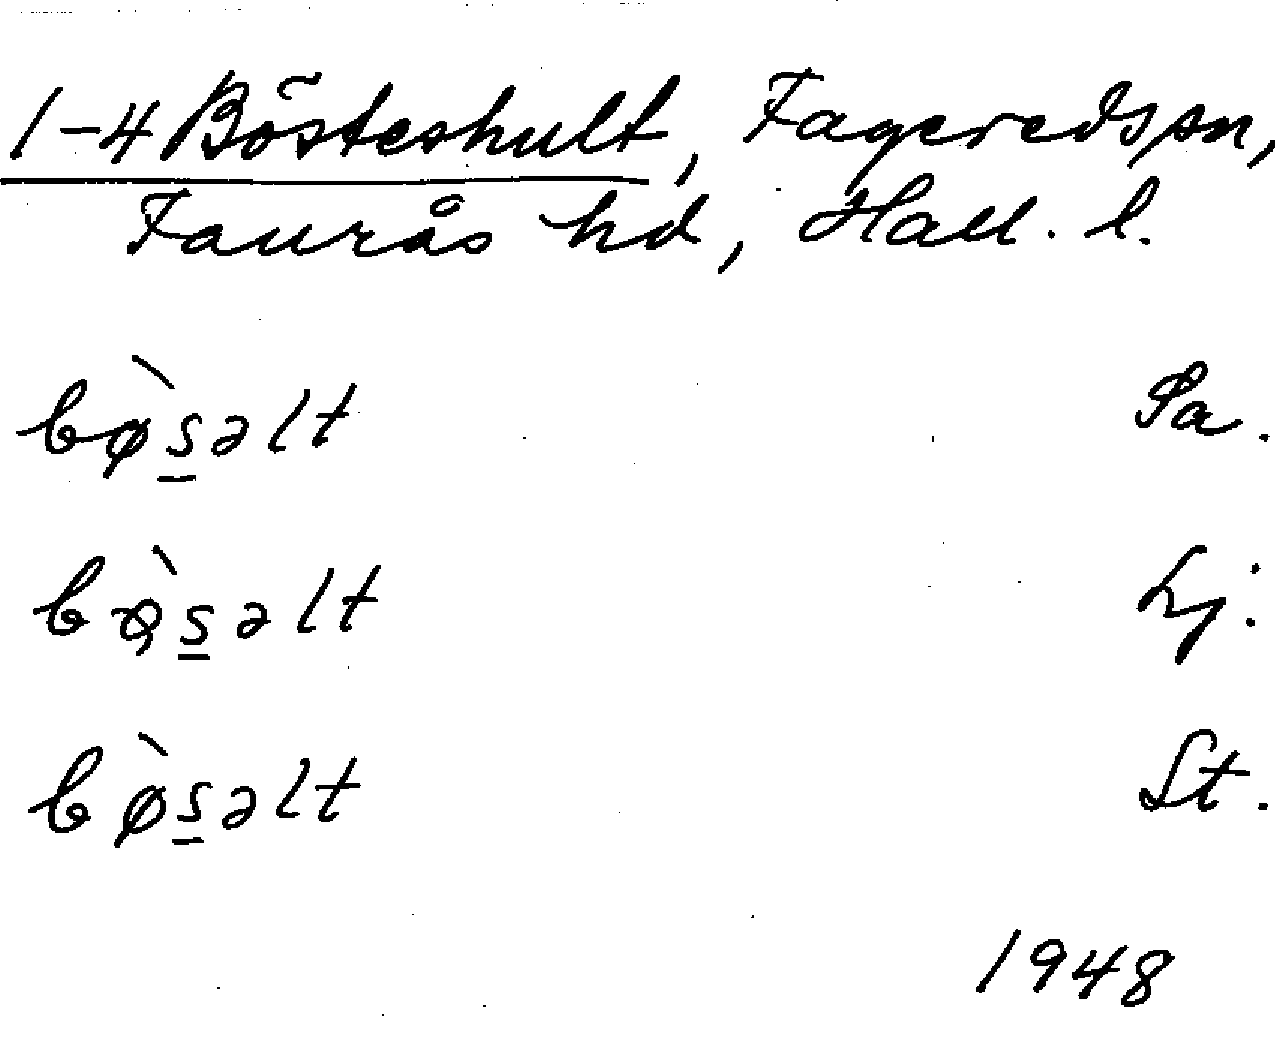 1-4 Bösteshult, Fagereds sn,
Faurås hd, Hall. l.
bø̀s̲əlt Sa.
bø̀s̲əlt Lj.
bø̀s̲əlt St.
1948